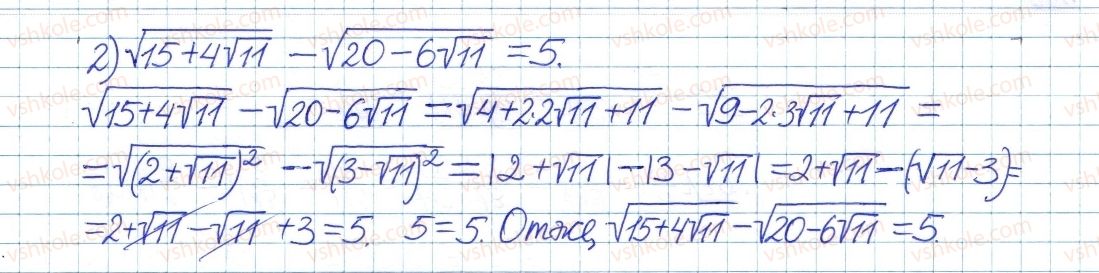 2) √(15+4√11) − √(20−6√11) = 5.
√(15+4√11) − √(20−6√11) = √(4+2·2√11+11) − √(9−2·3√11+11) =
= √((2+√11)²) − √((3−√11)²) = |2+√11| − |3−√11| = 2+√11 − (√11−3) =
= 2+√11 − √11 + 3 = 5. 5 = 5. Отже, √(15+4√11) − √(20−6√11) = 5.